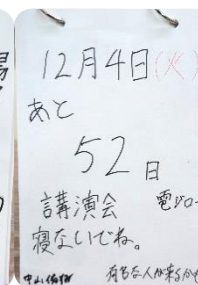 12月4日(火)
あと
52日
講演会
寝ないでね。
有名な人が来るかも